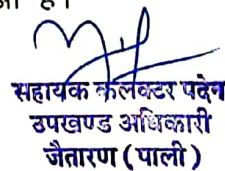 है।
सहायक कलेक्टर पदेन
उपखण्ड अधिकारी
जैतारण (पाली)